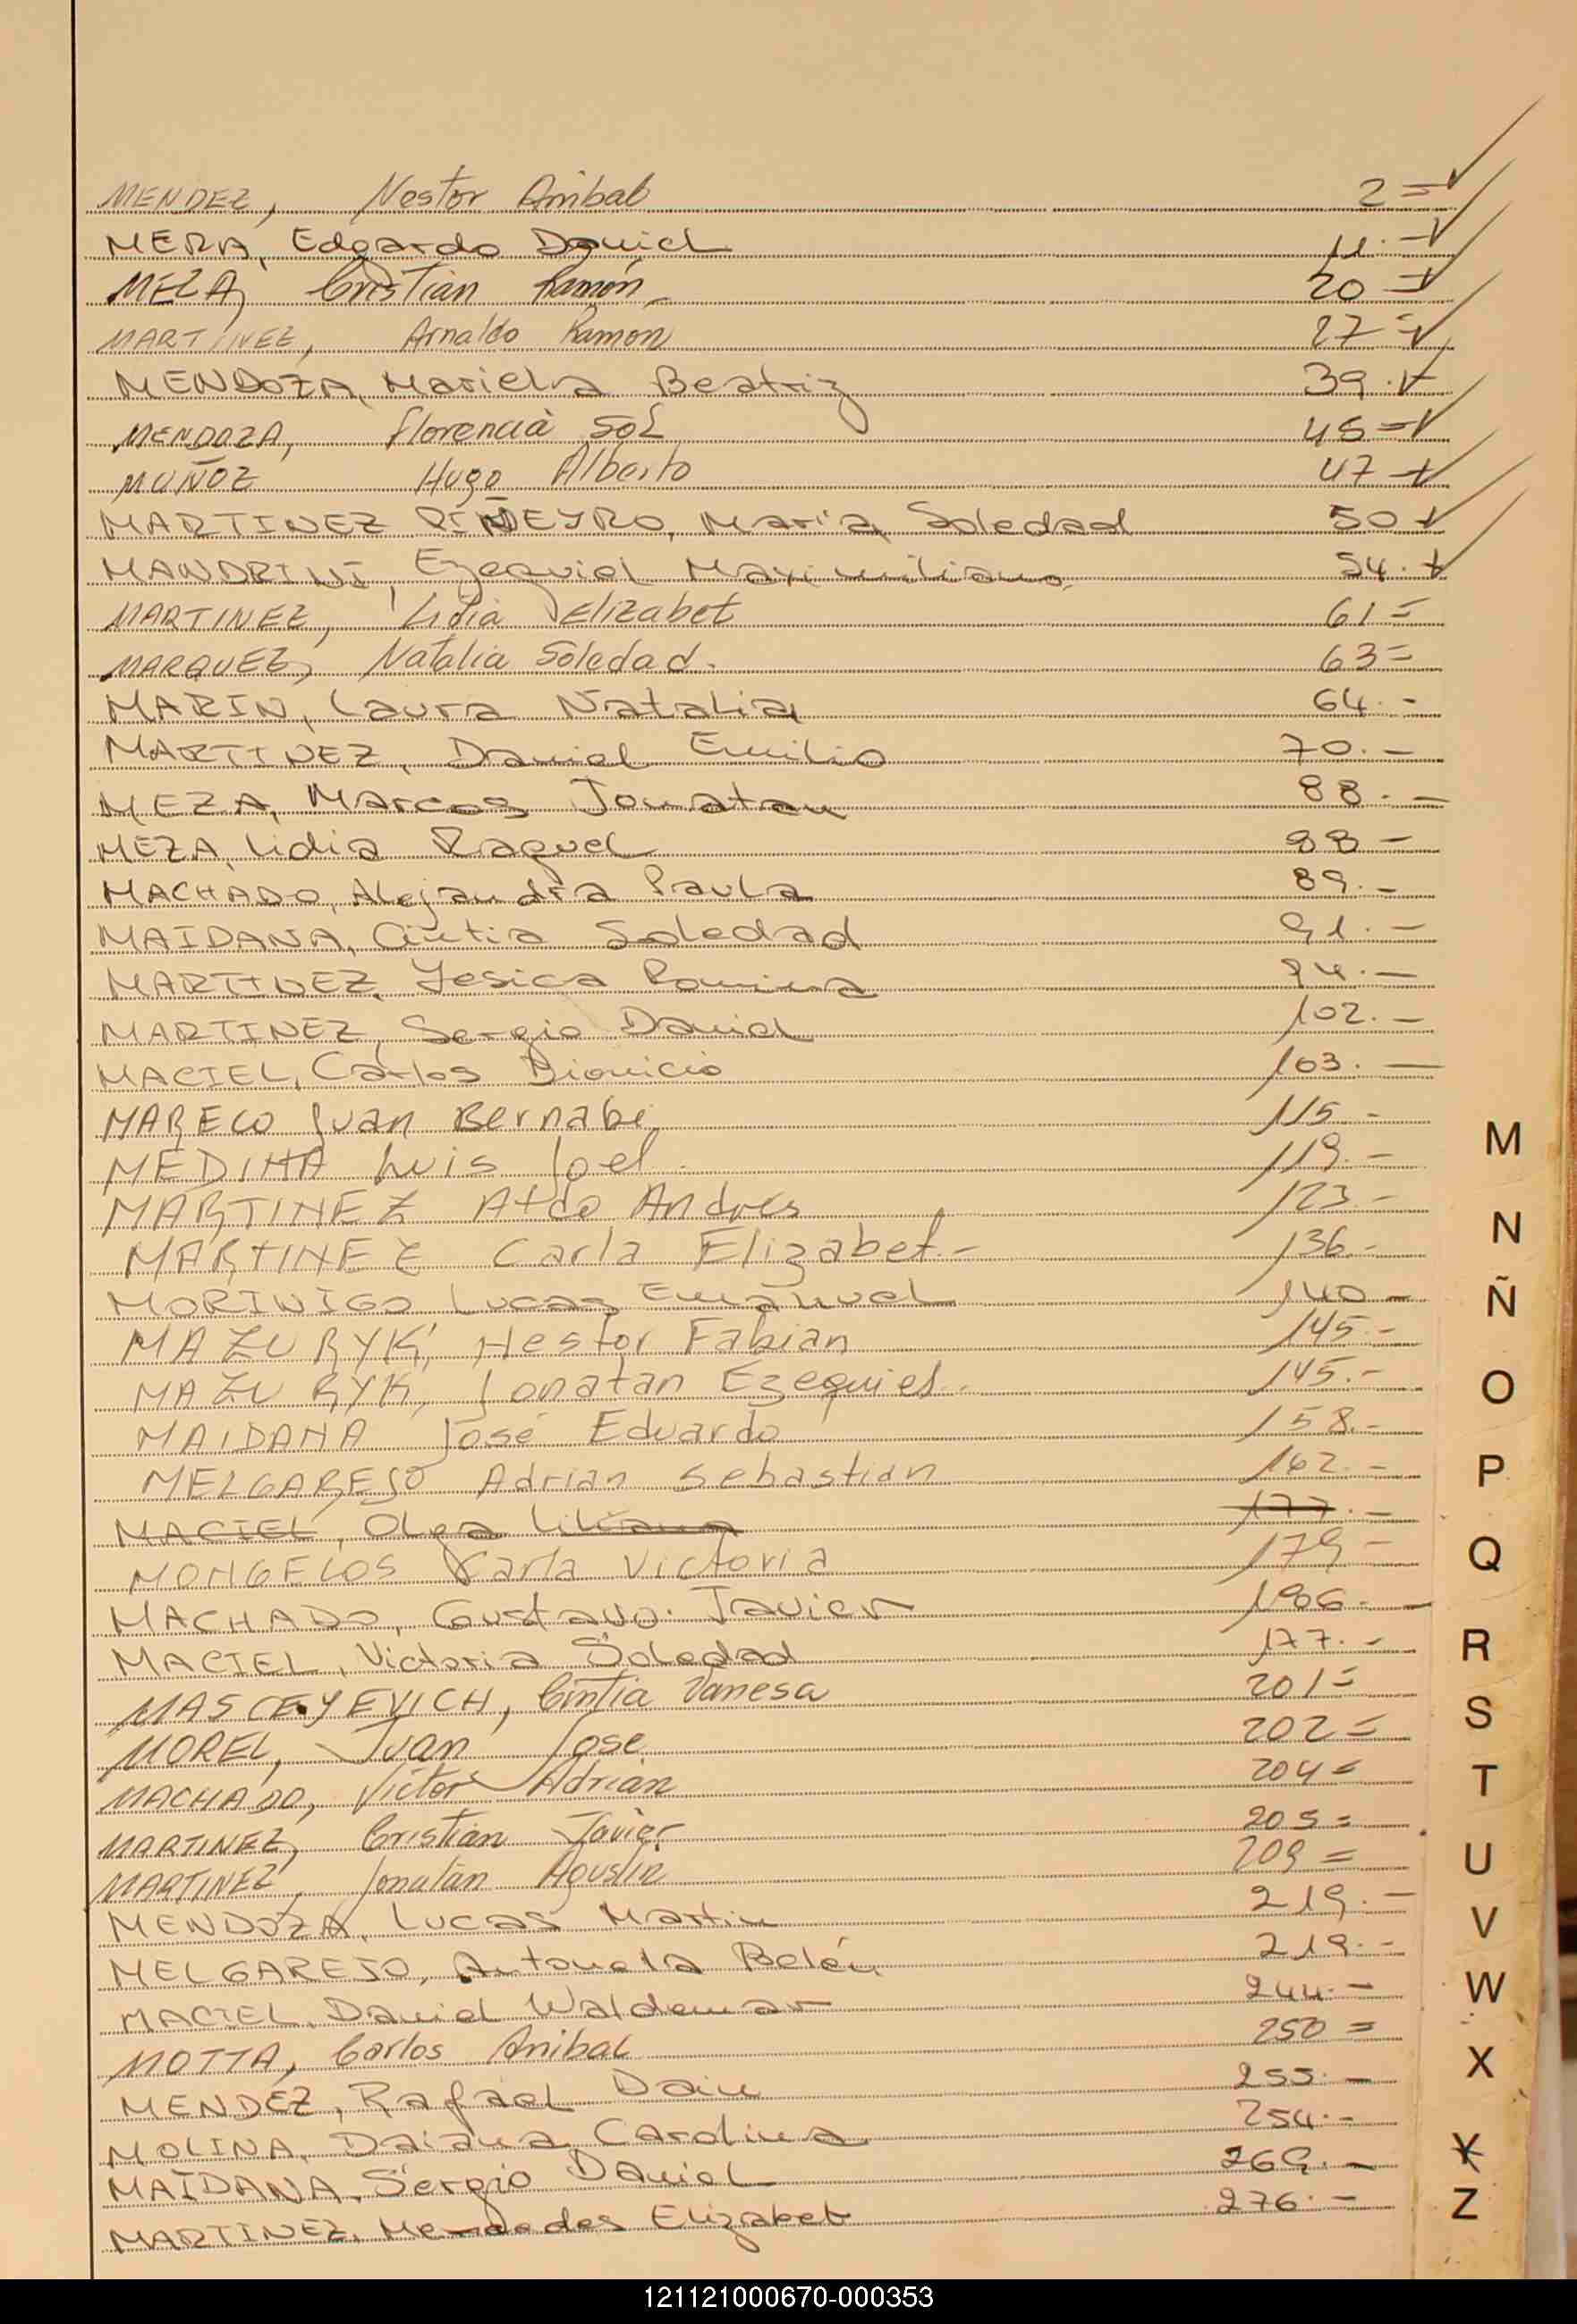 MENDEZ, Nestor Anibal 2=
MERA, Edgardo Daniel 11.-
MEZA, Cristian Ramón 20-
MARTINEZ, Arnaldo Ramón 27=
MENDOZA, Mariela Beatriz 39.-
MENDOZA, Florencia Sol 45=
MUÑOZ Hugo Alberto 47-
MARTINEZ PIÑEYRO, Maria Soledad 50
MANDRINI, Ezequiel Maximiliano 54.-
MARTINEZ, Lidia Elizabet 61=
MARQUEZ, Natalia Soledad. 63=
MARIN, Laura Natalia 64.-
MARTINEZ, Daniel Emilio 70.-
MEZA, Marcos Jonatan 88.-
MEZA, Lidia Raquel 88-
MACHADO, Alejandra Paula 89.-
MAIDANA, Cintia Soledad 91.-
MARTINEZ, Yesica Romina 94.-
MARTINEZ, Sergio Daniel 102.-
MACIEL, Carlos Dionicio 103.-
MARECO Juan Bernabe, 115.-
MEDINA Luis Joel. 119.-
MARTINEZ Aldo Andres 123.-
MARTINEZ Carla Elizabet.- 136.-
MORINIGO Lucas Emanuel 140-
MAZURYK, Nestor Fabian 145.-
MAZURYK, Jonatan Ezequiel.- 145.-
MAIDANA José Eduardo 158.-
MELGAREJO Adrian Sebastian 162.-
MACIEL, Olga Liliana 177.-
MONGELOS Karla Victoria 179-
MACHADO, Gustavo Javier
MACIEL, Victoria Soledad 177.-
MASCEYEVICH, Cintia Vanesa 201=
MOREL, Juan Jose 202=
MACHADO, Victor Adrian 204=
MARTINEZ, Cristian Javier 205=
MARTINEZ, Jonatan Agustin 209=
MENDOZA, Lucas Martin 219.-
MELGAREJO, Antonela Belén 219.-
MACIEL, Daniel Waldemar 244.-
MOTTA, Carlos Anibal 250=
MENDEZ, Rafael Dain 255.-
MOLINA, Daiana Carolina 254.-
MAIDANA, Sergio Daniel 269.-
MARTINEZ, Mercedes Elizabet 276.-
M
N
Ñ
O
P
Q
R
S
T
U
V
W
X
Y
Z
121121000670-000353